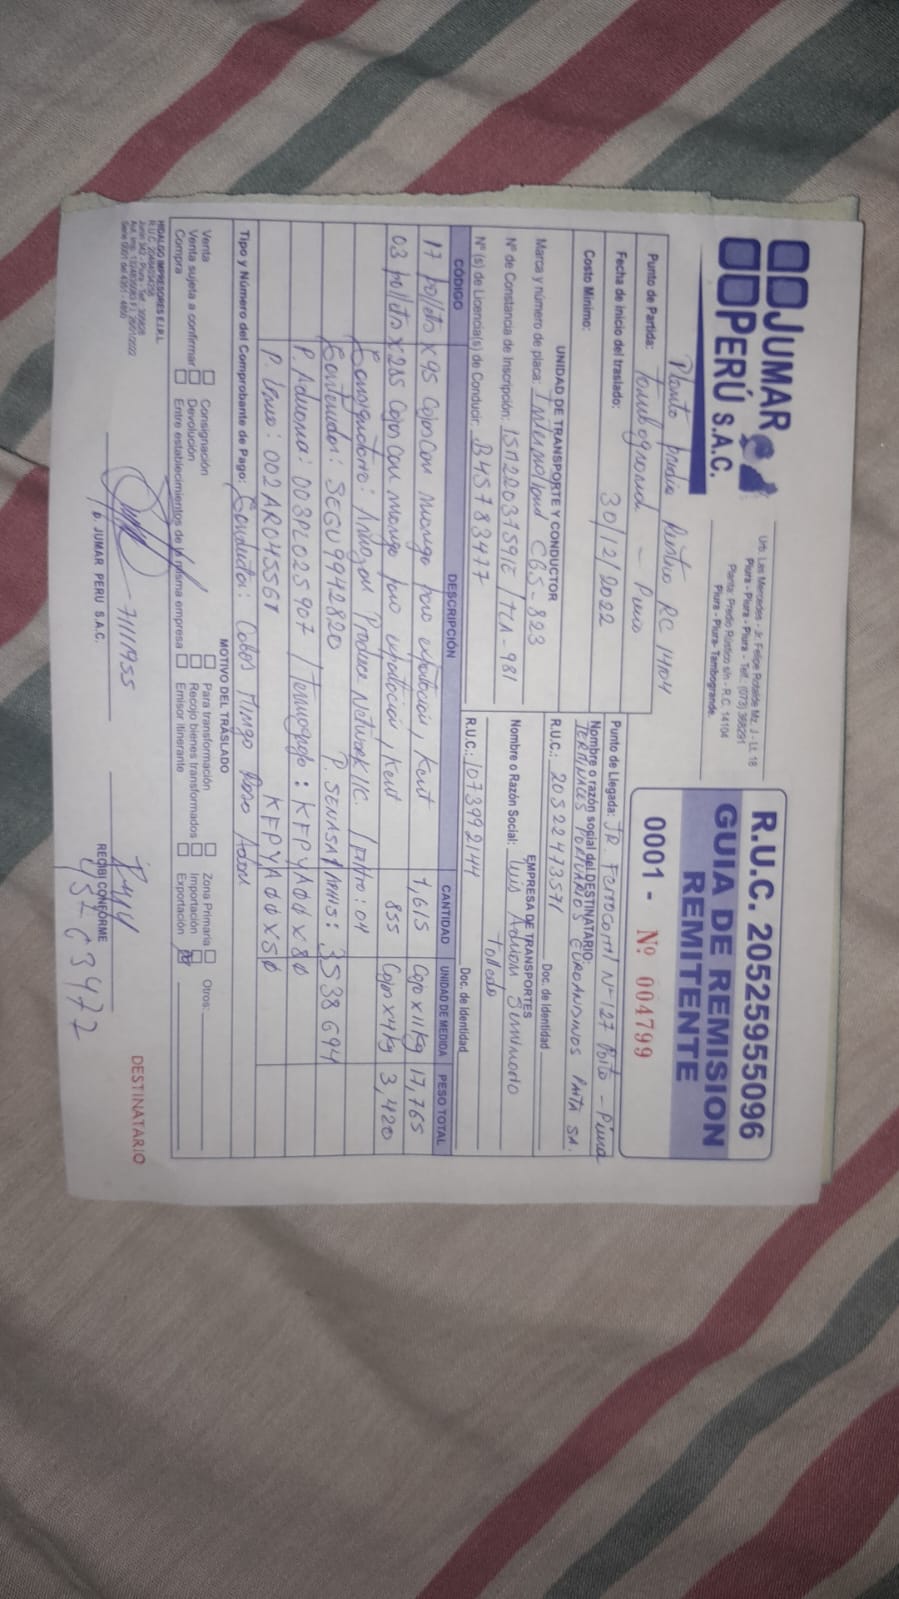 JUMAR
PERÚ S.A.C.
Urb. Las Mercedes - Jr. Felipe Rotalde Mz. J - Lt. 18
Piura - Piura - Piura - Telf.: (073) 368291
Planta: Predio Rústico s/n - R.C. 14104
Piura - Piura- Tambogrande.
R.U.C. 20525955096
GUIA DE REMISION
REMITENTE
0001 - Nº 004799
Planta predio Rustico RC 14104
Punto de Partida: Tambogrande - Piura
Fecha de inicio del traslado: 30/12/2022
Costo Mínimo:
Punto de Llegada: JR Ferrocarril Nº 127 Paita - Piura
Nombre o razón social del DESTINATARIO:
TERMINALES PORTUARIOS EUROANDINOS PAITA SA.
R.U.C.: 20522473571 Doc. de Identidad
UNIDAD DE TRANSPORTE Y CONDUCTOR
Marca y número de placa: International CBS-823
Nº de Constancia de Inscripción: 15122031591E/TCA-981
Nº (s) de Licencia(s) de Conducir: B45783477
EMPRESA DE TRANSPORTES
Nombre o Razón Social: Luis Adrom
Toledo
R.U.C.: 1073992144 Doc. de Identidad
CÓDIGO DESCRIPCIÓN CANTIDAD UNIDAD DE MEDIDA PESO TOTAL
17 pallets x 95 Cajas con mango para exportación, Kent 1,615 Caja x 11 Kg 17,765
03 pallets x 285 Cajas con mango para exportación, Kent 855 Cajas x 4 Kg 3,420
Consignatario: Amazon Produce Network LLC. / Filtro: 04
Contenedor: SEGU 9942820 P. SENASA/APHIS: 3538694
P. Aduana: 003PL025907 / Termografo: KFPYA00X80
P. Linea: 002AR045561 KFPYA00X50
Tipo y Número del Comprobante de Pago: Conductor: Cobos Mingo
MOTIVO DEL TRASLADO
Venta Consignación Para transformación Zona Primaria Otros:
Venta sujeta a confirmar Devolución Recojo bienes transformados Importación
Compra Entre establecimientos de la misma empresa Emisor Itinerante Exportación
HIDALGO IMPRESORES E.I.R.L.
Serie 0001 del 4351 - 4850
71111955
p. JUMAR PERU S.A.C.
RECIBI CONFORME
DESTINATARIO